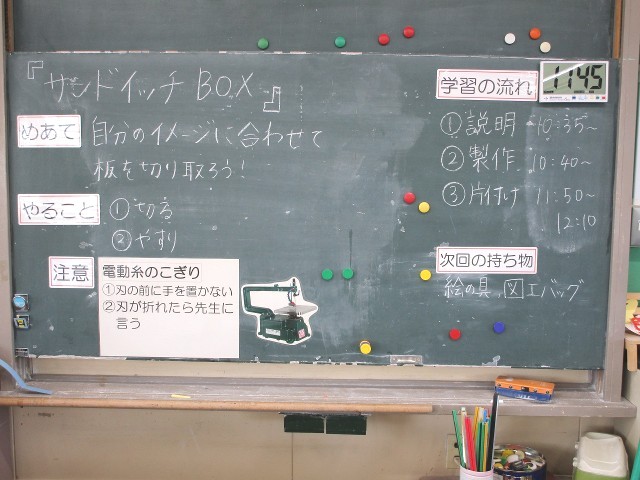 『サンドイッチBOX』
めあて 自分のイメージに合わせて
板を切り取ろう!
やること ①切る
②やすり
注意
電動糸のこぎり
①刃の前に手を置かない
②刃が折れたら先生に
言う
学習の流れ
11:45
①説明 10:35~
②製作 10:40~
③片付け 11:50~
12:10
次回の持ち物
絵の具、図工バッグ